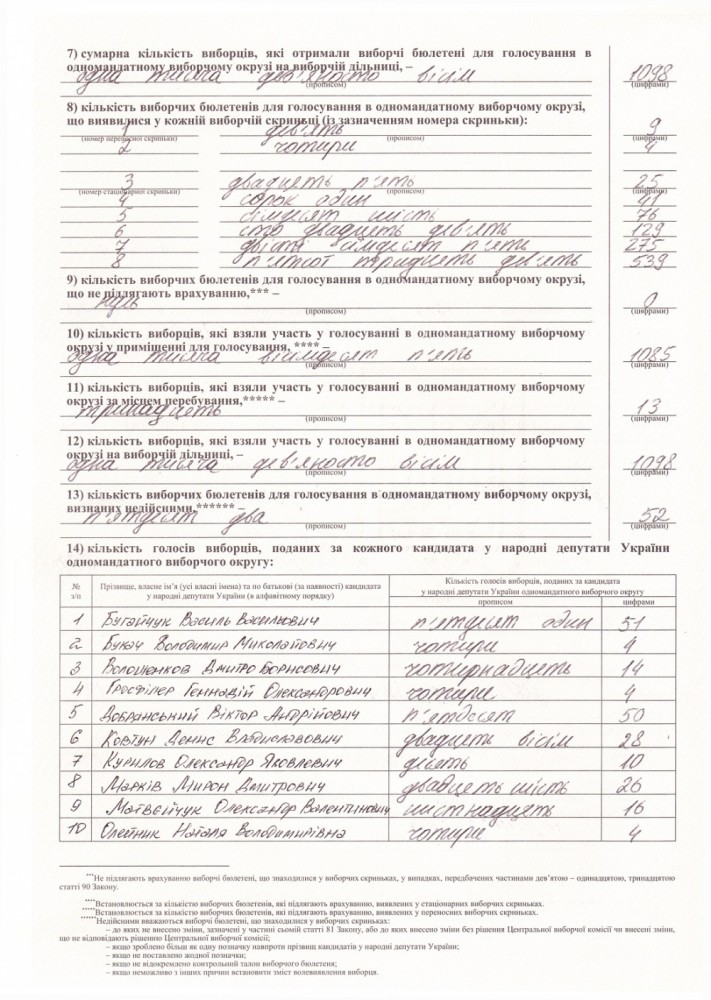 7) сумарна кількість виборців, які отримали виборчі бюлетені для голосування в
одномандатному виборчому окрузі на виборчій дільниці, –
одна тисяча дев'яносто вісім 1098
(прописом) (цифрами)
8) кількість виборчих бюлетенів для голосування в одномандатному виборчому окрузі,
що виявилися у кожній виборчій скриньці (із зазначенням номера скриньки):
1 дев'ять 9
(номер переносної скриньки) (прописом) (цифрами)
2 чотири 4
3 двадцять п'ять 25
(номер стаціонарної скриньки) (прописом) (цифрами)
4 сорок один 41
5 сімдесят шість 76
6 сто двадцять дев'ять 129
7 двісті сімдесят п'ять 275
8 п'ятсот тридцять дев'ять 539
9) кількість виборчих бюлетенів для голосування в одномандатному виборчому окрузі,
що не підлягають врахуванню,*** –
нуль 0
(прописом) (цифрами)
10) кількість виборців, які взяли участь у голосуванні в одномандатному виборчому
окрузі у приміщенні для голосування, **** –
одна тисяча вісімдесят п'ять 1085
(прописом) (цифрами)
11) кількість виборців, які взяли участь у голосуванні в одномандатному виборчому
окрузі за місцем перебування,***** –
тринадцять 13
(прописом) (цифрами)
12) кількість виборців, які взяли участь у голосуванні в одномандатному виборчому
окрузі на виборчій дільниці, –
одна тисяча дев'яносто вісім 1098
(прописом) (цифрами)
13) кількість виборчих бюлетенів для голосування в одномандатному виборчому окрузі,
визнаних недійсними,****** –
п'ятдесят два 52
(прописом) (цифрами)
14) кількість голосів виборців, поданих за кожного кандидата у народні депутати України
одномандатного виборчого округу:
№ з/п Прізвище, власне ім'я (усі власні імена) та по батькові (за наявності) кандидата у народні депутати України (в алфавітному порядку) Кількість голосів виборців, поданих за кандидата у народні депутати України одномандатного виборчого округу
прописом цифрами
1 Бугайчук Василь Васильович п'ятдесят один 51
2 Букач Володимир Миколайович чотири 4
3 Волошенков Дмитро Борисович чотирнадцять 14
4 Гросфілер Геннадій Олександрович чотири 4
5 Добранський Віктор Андрійович п'ятдесят 50
6 Ковтун Денис Владиславович двадцять вісім 28
7 Курилов Олександр Яковлевич десять 10
8 Марків Мирон Дмитрович двадцять шість 26
9 Матвєйчук Олександр Валентинович шістнадцять 16
10 Олейник Наталя Володимирівна чотири 4
***Не підлягають врахуванню виборчі бюлетені, що знаходилися у виборчих скриньках, у випадках, передбачених частинами дев'ятою – одинадцятою, тринадцятою
статті 90 Закону.
****Встановлюється за кількістю виборчих бюлетенів, які підлягають врахуванню, виявлених у стаціонарних виборчих скриньках.
*****Встановлюється за кількістю виборчих бюлетенів, які підлягають врахуванню, виявлених у переносних виборчих скриньках.
******Недійсними вважаються виборчі бюлетені, що знаходилися у виборчих скриньках:
– до яких не внесено зміни, зазначені у частині сьомій статті 81 Закону, або до яких внесено зміни без рішення Центральної виборчої комісії чи внесені зміни,
що не відповідають рішенню Центральної виборчої комісії;
– якщо зроблено більш як одну позначку навпроти прізвищ кандидатів у народні депутати України;
– якщо не поставлено жодної позначки;
– якщо не відокремлено контрольний талон виборчого бюлетеня;
– якщо неможливо з інших причин встановити зміст волевиявлення виборця.